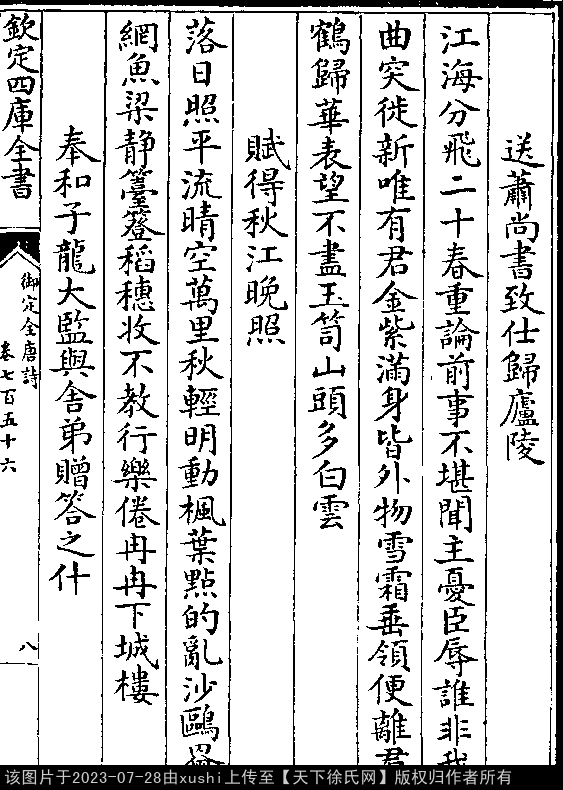 送蕭尚書致仕歸廬陵
江海分飛二十春重論前事不堪聞主憂臣辱誰非我
曲突徙新唯有君金紫滿身皆外物雪霜垂領便離君
鶴歸華表望不盡玉笥山頭多白雲
賦得秋江晚照
落日照平流晴空萬里秋輕明動楓葉點的亂沙鷗罾
網魚梁静簦簦稻穗收不教行樂倦冉冉下城樓
奉和子龍大監與舍弟贈答之什
欽定四庫全書
御定全唐詩
卷七百五十六
八
该图片于2023-07-28由xushi上传至【天下徐氏网】版权归作者所有